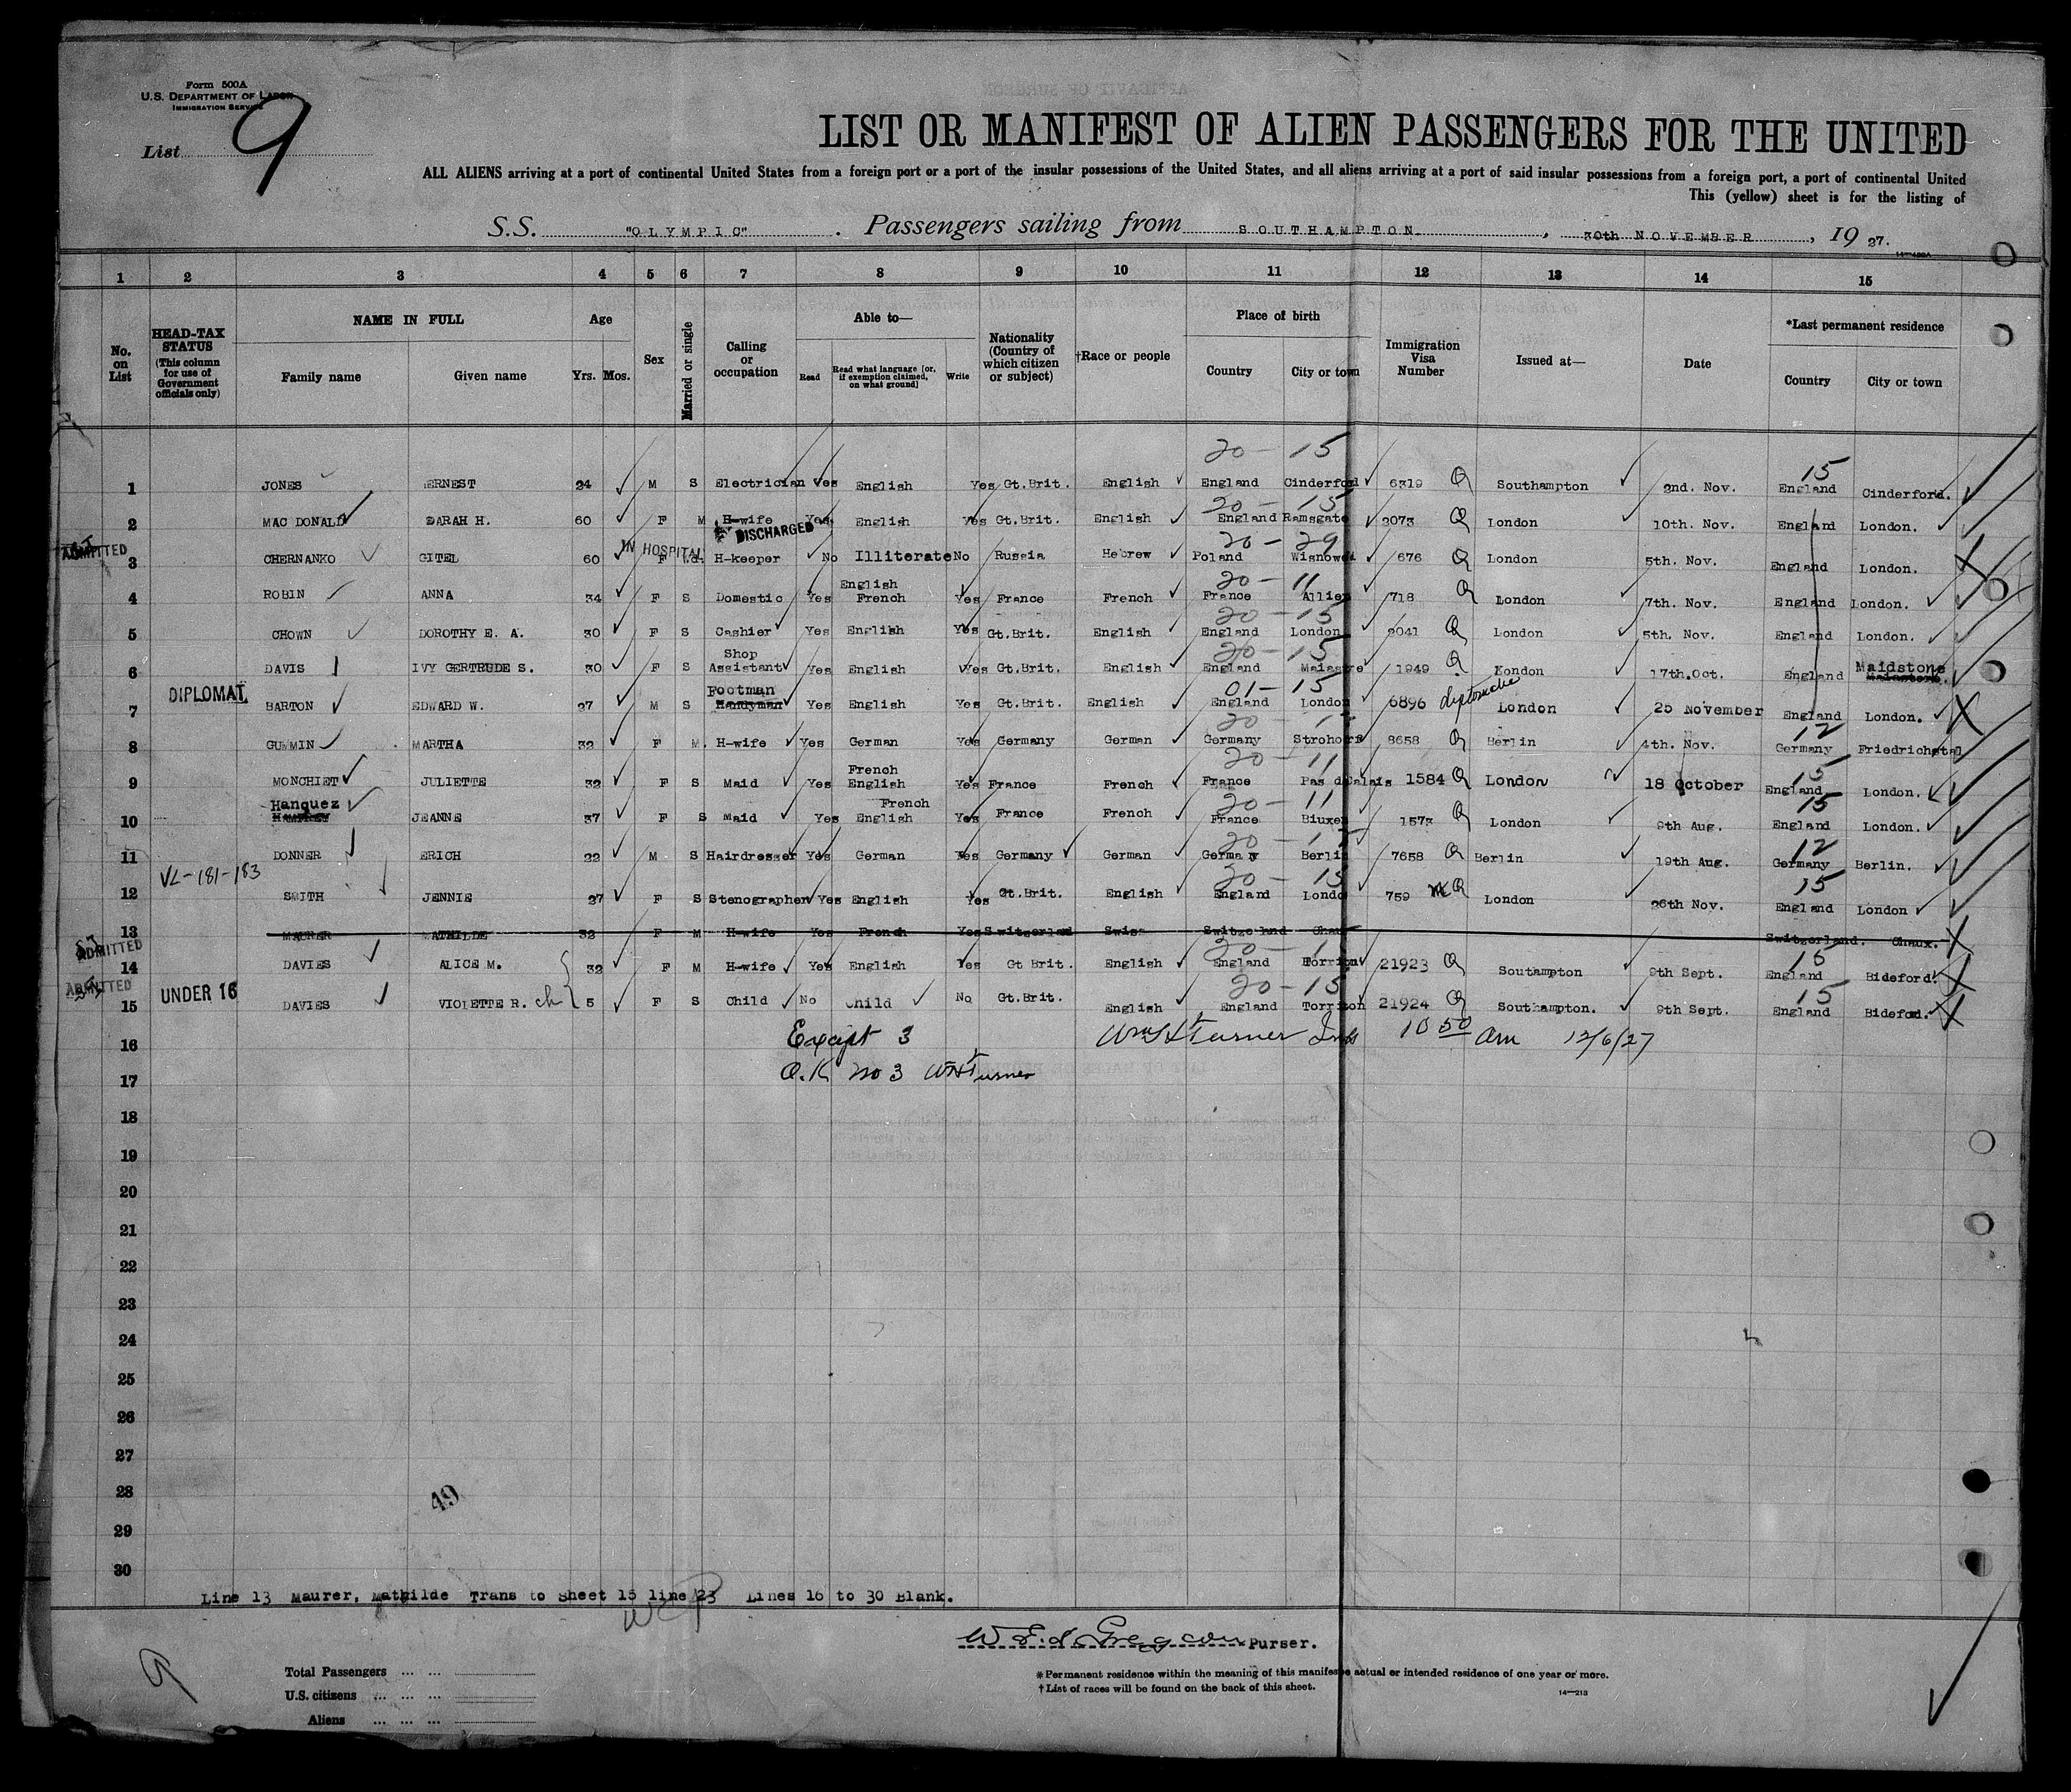 Form 500A
U.S. DEPARTMENT OF LABOR
IMMIGRATION SERVICE
List 9
LIST OR MANIFEST OF ALIEN PASSENGERS FOR THE UNITED
ALL ALIENS arriving at a port of continental United States from a foreign port or a port of the insular possessions of the United States, and all aliens arriving at a port of said insular possessions from a foreign port, a port of continental United
This (yellow) sheet is for the listing of
S.S. "OLYMPIC" . Passengers sailing from SOUTHAMPTON. , 30th NOVEMBER , 19 27.
1 2 3 4 5 6 7 8 9 10 11 12 13 14 15
No. on List
HEAD-TAX STATUS (This column for use of Government officials only)
NAME IN FULL
Family name Given name
Age
Yrs. Mos.
Sex
Married or single
Calling or occupation
Able to—
Read Read what language [or, if exemption claimed, on what ground] Write
Nationality (Country of which citizen or subject)
†Race or people
Place of birth
Country City or town
Immigration Visa Number
Issued at—
Date
*Last permanent residence
Country City or town
20 - 15 15
1 JONES ERNEST 24 M S Electrician Yes English Yes Gt.Brit. English England Cinderford 6319 Q Southampton 2nd. Nov. England Cinderford.
20 - 15
2 MAC DONALD SARAH H. 60 F M H-wife Yes English Yes Gt.Brit. English England Ramsgate 2073 Q London 10th. Nov. England London.
ADMITTED IN HOSPITAL DISCHARGED 20 - 29
3 CHERNANKO GITEL 60 F H-keeper No Illiterate No Russia Hebrew Poland 676 Q London 5th. Nov. England London.
English 20 - 11
4 ROBIN ANNA 34 F S Domestic Yes French Yes France French France Allier 718 Q London 7th. Nov. England London.
20 - 15
5 CHOWN DOROTHY E. A. 30 F S Cashier Yes English Yes Gt.Brit. English England London 2041 Q London 5th. Nov. England London.
Shop 20 - 15 Maidstone
6 DAVIS IVY GERTRUDE S. 30 F S Assistant Yes English Yes Gt.Brit. English England 1949 Q London 17th.Oct. England
DIPLOMAT Footman 01 - 15
7 BARTON EDWARD W. 27 M S Handyman Yes English Yes Gt.Brit. English England London 6896 London 25 November England London.
20 - 12 12
8 GUMMIN MARTHA 32 F M. H-wife Yes German Yes Germany German Germany 8658 Q Berlin 4th. Nov. Germany Friedrichstal
French 20 - 11 15
9 MONCHIET JULIETTE 32 F S Maid Yes English Yes France French France Pas d Calais 1584 Q London 18 October England London.
Hanquez French 20 - 11 15
10 JEANNE 37 F S Maid Yes English Yes France French France Biuxen 1573 Q London 9th Aug. England London.
20 - 12 12
11 DONNER ERICH 22 M S Hairdresser Yes German Yes Germany German Germany Berlin 7658 Q Berlin 19th Aug. Germany Berlin.
VL-181-183 20 - 15 15
12 SMITH JENNIE 27 F S Stenographer Yes English Yes Gt.Brit. English England London 759 Q London 26th Nov. England London
13 MAURER MATHILDE 32 F M H-wife Yes French Yes Switzerland Swiss Switzerland Chaux Switzerland. Chaux.
ADMITTED 20 - 15 15
14 DAVIES ALICE M. 32 F M H-wife Yes English Yes Gt Brit. English England Torrington 21923 Q Southampton 9th Sept. England Bideford.
ADMITTED UNDER 16 20 - 15 15
15 DAVIES VIOLETTE R. ch 5 F S Child No Child No Gt.Brit. English England Torriton 21924 Q Southampton. 9th Sept. England Bideford.
16 Except 3 Wm H Turner Ins 10 50 am 12/6/27
17 O.K no 3 Wm H Turner
18
19
20
21
22
23
24
25
26
27
28
49
29
30
Line 13 Maurer, Mathilde Trans to Sheet 15 line 23 Lines 16 to 30 Blank.
Purser.
9
Total Passengers ... ...
U.S. citizens ... ... ...
Aliens ... ... ...
*Permanent residence within the meaning of this manifest actual or intended residence of one year or more.
†List of races will be found on the back of this sheet.
14—213